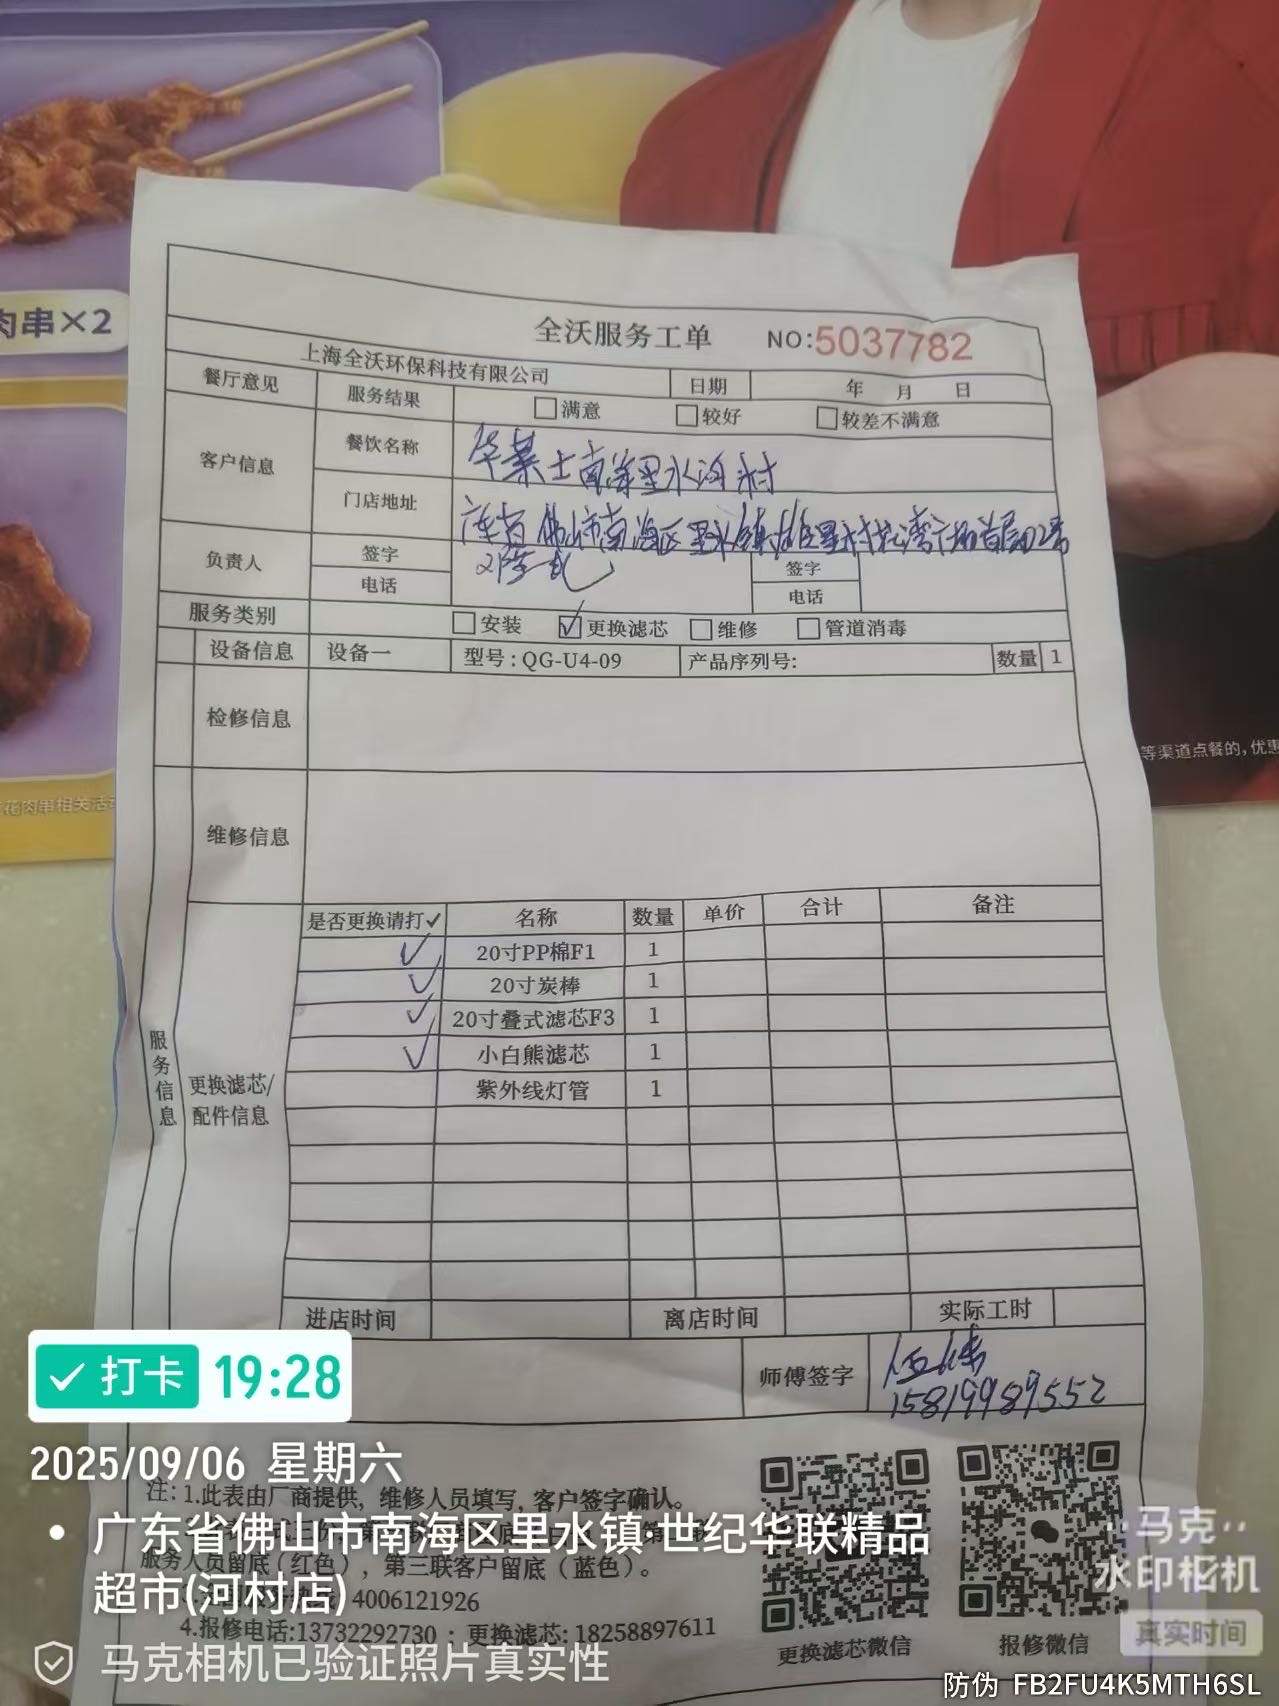 肉串×2
花肉串相关活
等渠道点餐的,优惠
全沃服务工单 NO:5037782
上海全沃环保科技有限公司 日期 年 月 日
餐厅意见 服务结果 满意 较好 较差不满意
客户信息 餐饮名称 华莱士南海里水河村
门店地址 佛山市南海区里水镇 湾广场首层02号
负责人 签字 签字
电话 电话
服务类别 安装 ✓更换滤芯 维修 管道消毒
设备信息 设备一 型号:QG-U4-09 产品序列号: 数量 1
检修信息
维修信息
服务信息
更换滤芯/配件信息
是否更换请打✓ 名称 数量 单价 合计 备注
✓ 20寸PP棉F1 1
✓ 20寸炭棒 1
✓ 20寸叠式滤芯F3 1
✓ 小白熊滤芯 1
紫外线灯管 1
进店时间 离店时间 实际工时
师傅签字
15819989552
✓打卡 19:28
2025/09/06 星期六
注:1.此表由厂商提供,维修人员填写,客户签字确认。
广东省佛山市南海区里水镇·世纪华联精品
超市(河村店)
服务人员留底(红色),第三联客户留底(蓝色)。
4006121926
4.报修电话:13732292730;更换滤芯:18258897611
更换滤芯微信 报修微信
马克相机已验证照片真实性
马克
水印相机
真实时间
防伪 FB2FU4K5MTH6SL